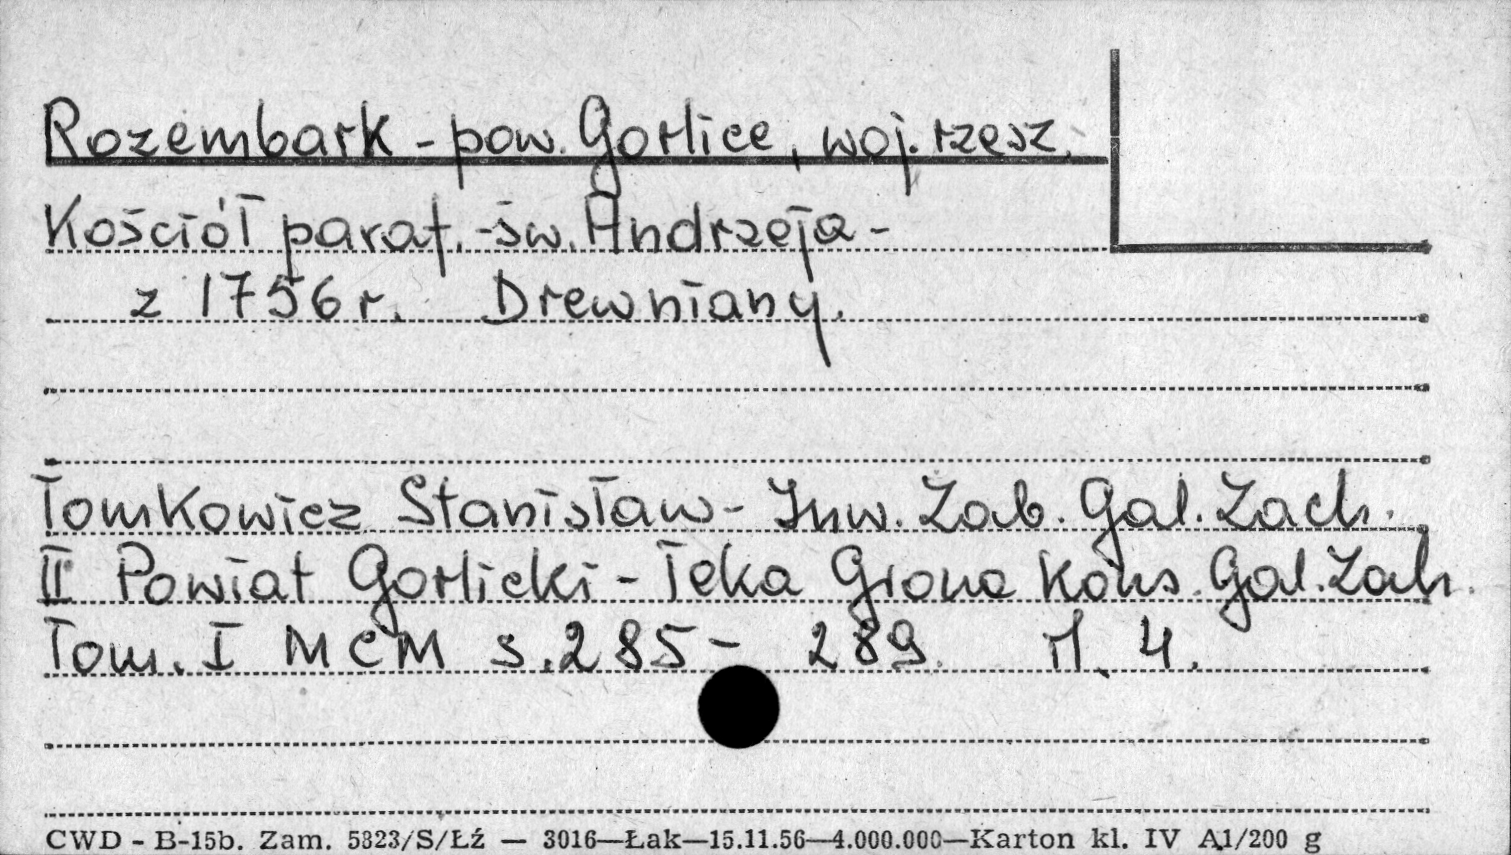 Rozembark - pow. Gorlice, woj. rzesz.
Kościół paraf. - św. Andrzeja -
z 1756 r. Drewniany.
Tomkowicz Stanisław - Inw. Zab. Gal. Zach.
II Powiat Gorlicki - Teka Grona Kons. Gal. Zach.
Tom. I MCM s. 285 - 289. Il. 4.
CWD - B-15b. Zam. 5823/S/Łź — 3016—Łak—15.11.56—4.000.000—Karton kl. IV A1/200 g